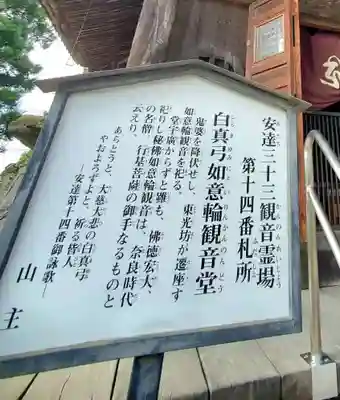 安達三十三観音霊場
第十四番札所
白真弓如意輪観音堂
鬼婆を降伏せし、東光坊が遷座す
如意輪観音を祀る。
堂宇廣からずと雖も、佛徳宏大、
祀りし秘佛如意輪観音は、奈良時代
の名僧 行基菩薩の御手なるものと
云えり、
あらとうと、大慈大悲の白真弓
やおよろずよと、祈る皆人
安達第十四番御詠歌―
山主